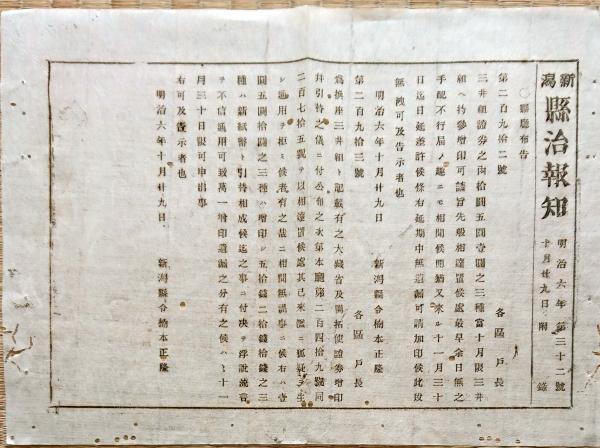 新潟縣治報知
明治六年第三十二號
十月廿九日附錄
○縣廳布告
第二百九拾二號
各區戸長
三井組證券之內拾圓五圓壹圓之三種當十月限三井
組ヘ持參增印可請旨先般相達置候處最早余日無之
手配不行屆ノ趣ニモ相聞候間猶又來ル十一月三十
日迄日延差許候條右延期中無遺漏可請加印候此段
無洩可及告示者也
明治六年十月廿九日 新潟縣令楠本正隆
第二百九拾三號
各區戸長
爲換座三井組ト記載有之大藏省及開拓使證券增印
并引替之儀ニ付公布之次第本廳第二百四拾九號同
二百七拾五號ヲ以相達置候處其已來濫ニ狐疑ヲ生
シ通用ヲ拒ミ候者有之哉ニ相聞無謂事ニ候右ハ壹
圓五圓拾圓之三種ハ增印シ五拾錢二拾錢拾錢之三
種ハ新紙幣ト引替相成候迄之事ニ付決テ浮說流言
ヲ不信通用可致萬一增印遺漏之分有之候ハヽ十一
月三十日限可申出事
右可及告示者也
明治六年十月廿九日 新潟縣令楠本正隆